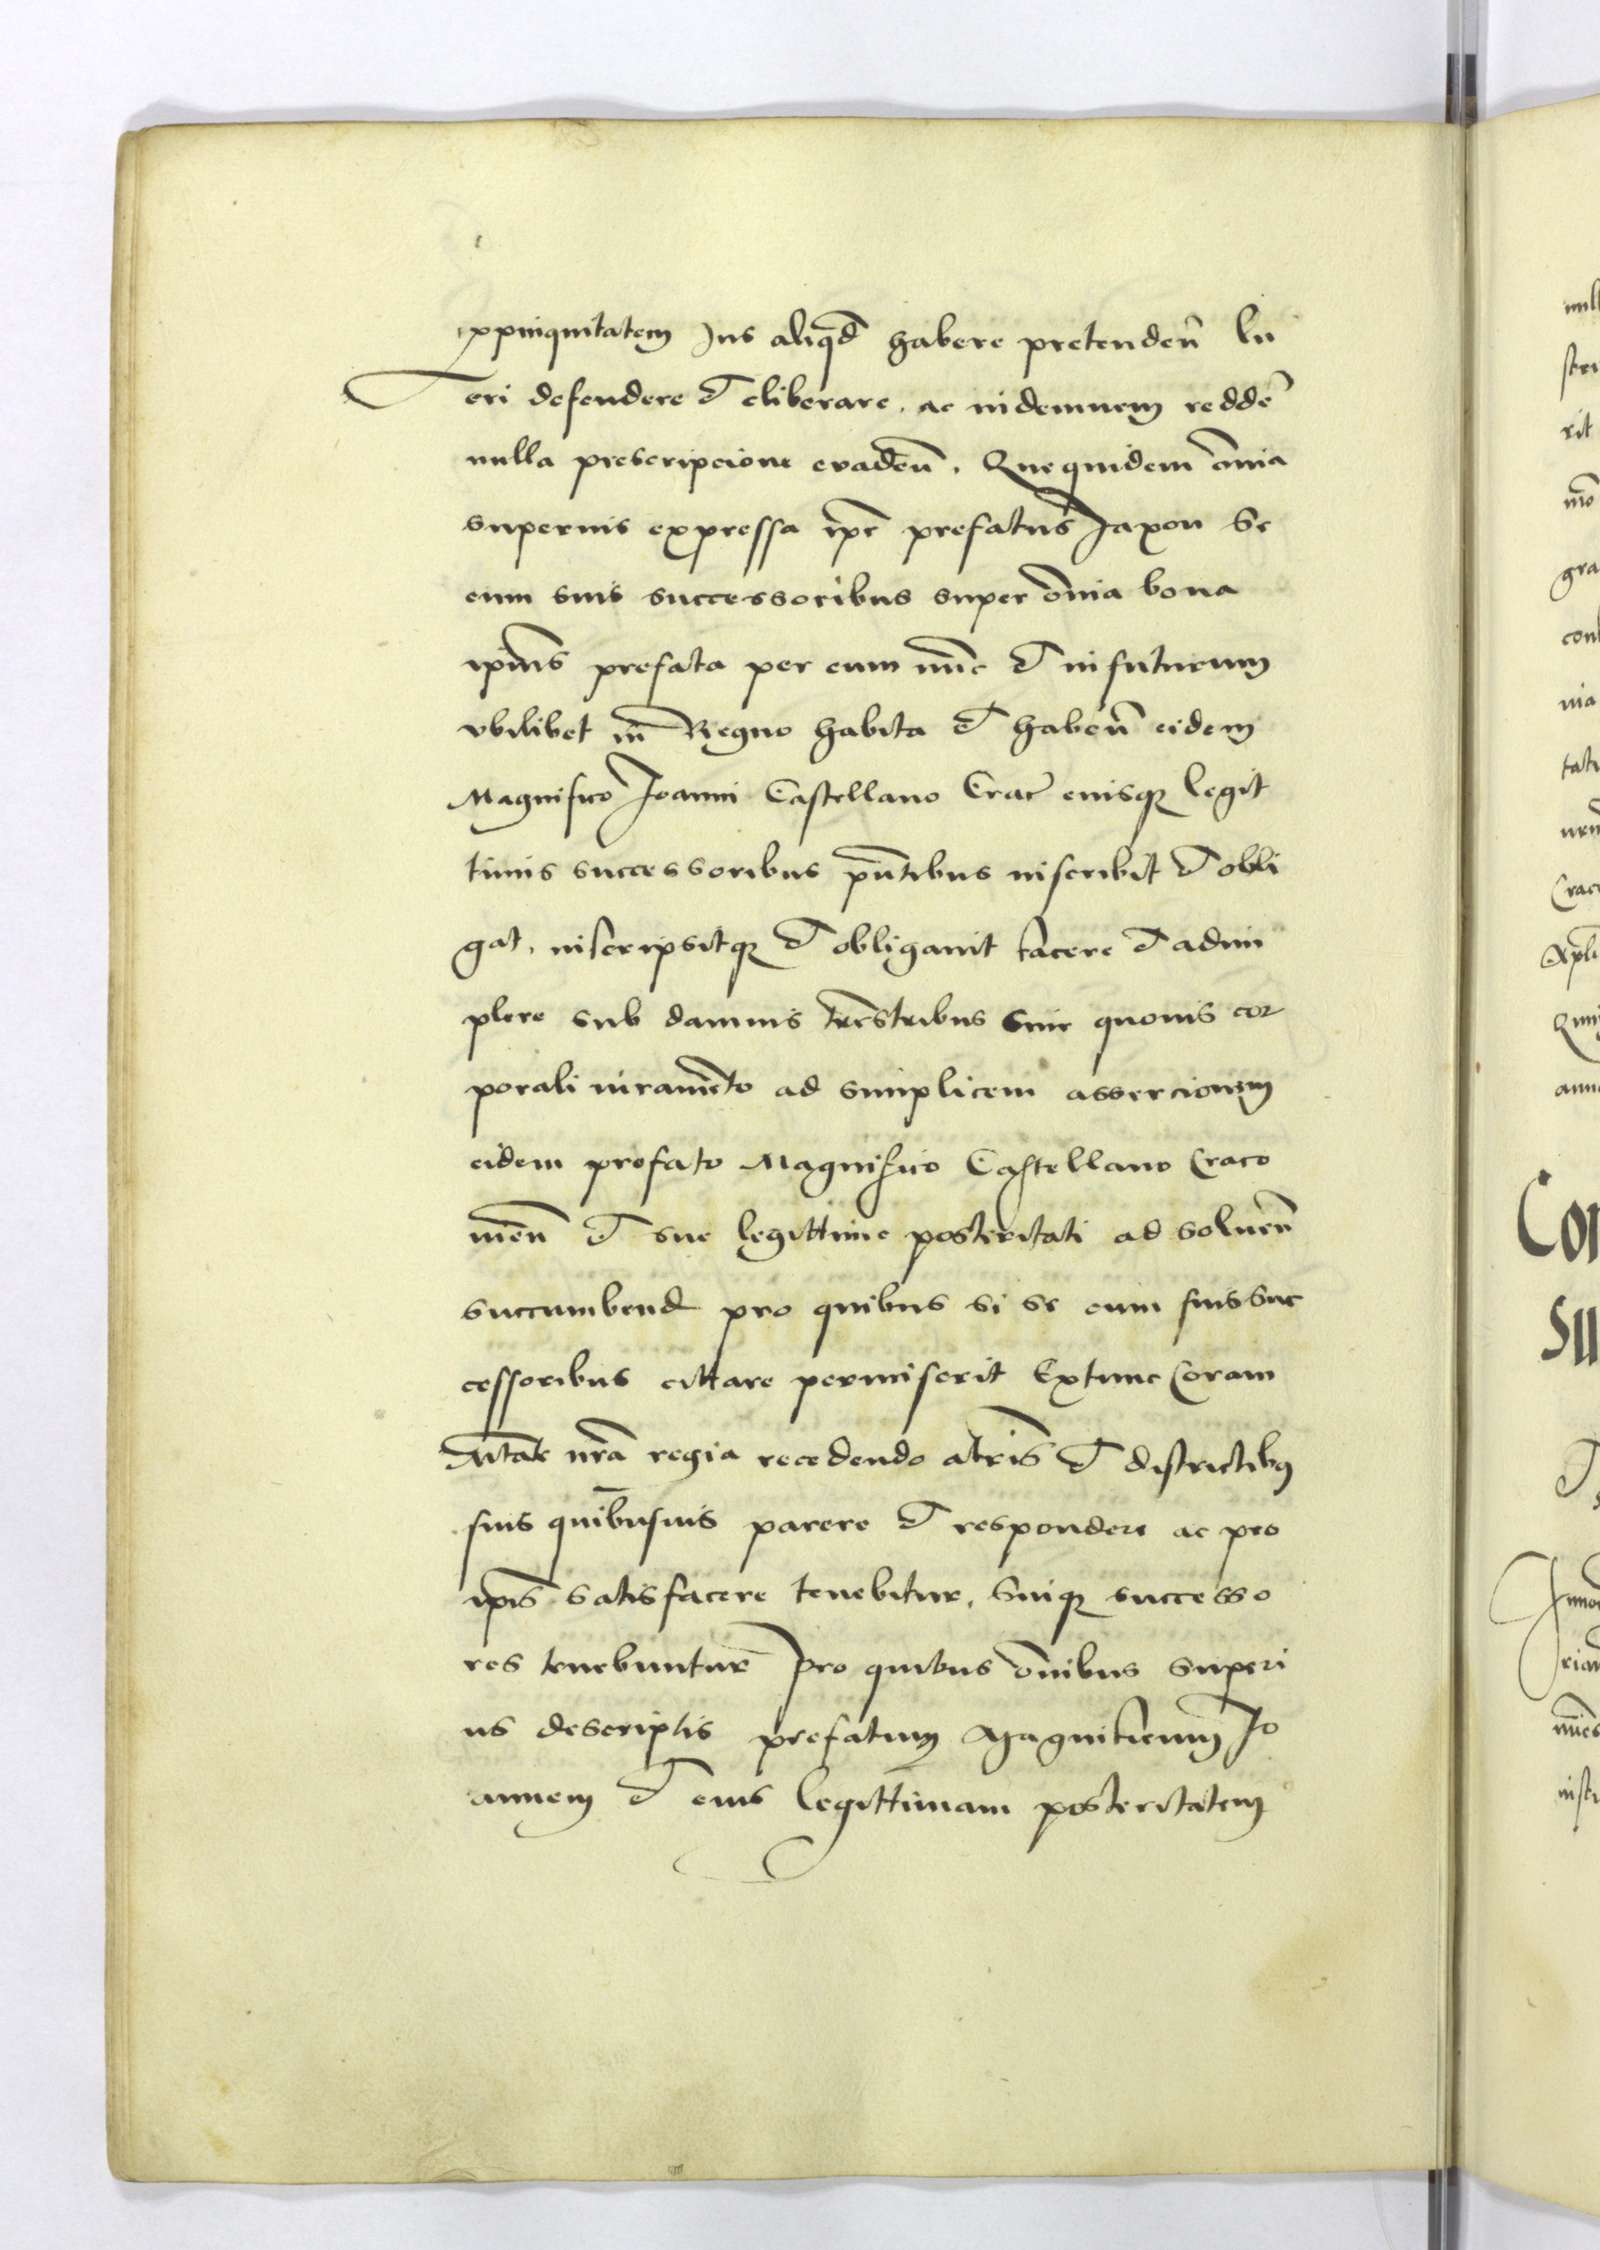 ꝓpinquitatem Ius aliqd̄ habere pretendeñ In
teri defendere et eliberare. ac indemnem reddē
nulla prescripcione evadeñ. Que quidem om̄ia
superius expressa ip̄e prefatus Iaxon se
cum suis successoribus super om̄ia bona
ip̄ius prefata per eum nūc et in futurum
vbilibet in Regno habita et habeñ eidem
Magnifico Ioanni Castellano Crac̄ eiusqꝫ legit
timis successoribus p̄ntibus inscribit et obli
gat. inscripsitqꝫ et obligauit facere et adim
plere sub damnis terrestribus sine quouis cor
porali iuramēto ad simplicem assercionem
eidem prefato Magnifico Castellano Craco
uieñ et sue legittime posteritati ad solueñ
succumbend pro quibus si se cum suis suc
cessoribus cittare permiserit Extunc Coram
Mtate nr̄a regia recedendo a tr̄is et districtibꝰ
suis quibusuis parere et respondere ac pro
ip̄is satisfacere tenebitur. Suiqꝫ successo
res tenebuntur Pro quibus om̄ibus superi
us descriptis prefatum Magnificum Io
annem et eius legittimam posteritatem
Con
Su